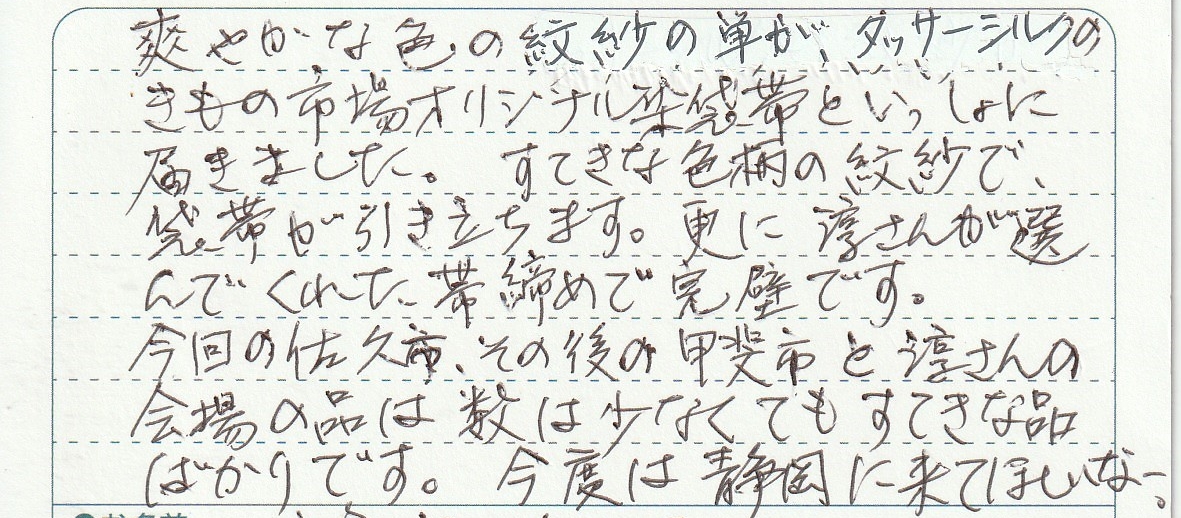 爽やかな色の紋紗の単が タッサーシルクの
きもの市場オリジナル染袋帯といっしょに
届きました。 すてきな色柄の紋紗で、
袋帯が引き立ちます。更に 淳さんが選
んでくれた帯締めで完璧です。
今回の佐久市、その後の甲斐市と淳さんの
会場の品は数は少なくてもすてきな品
ばかりです。 今度は静岡に来てほしいなー。